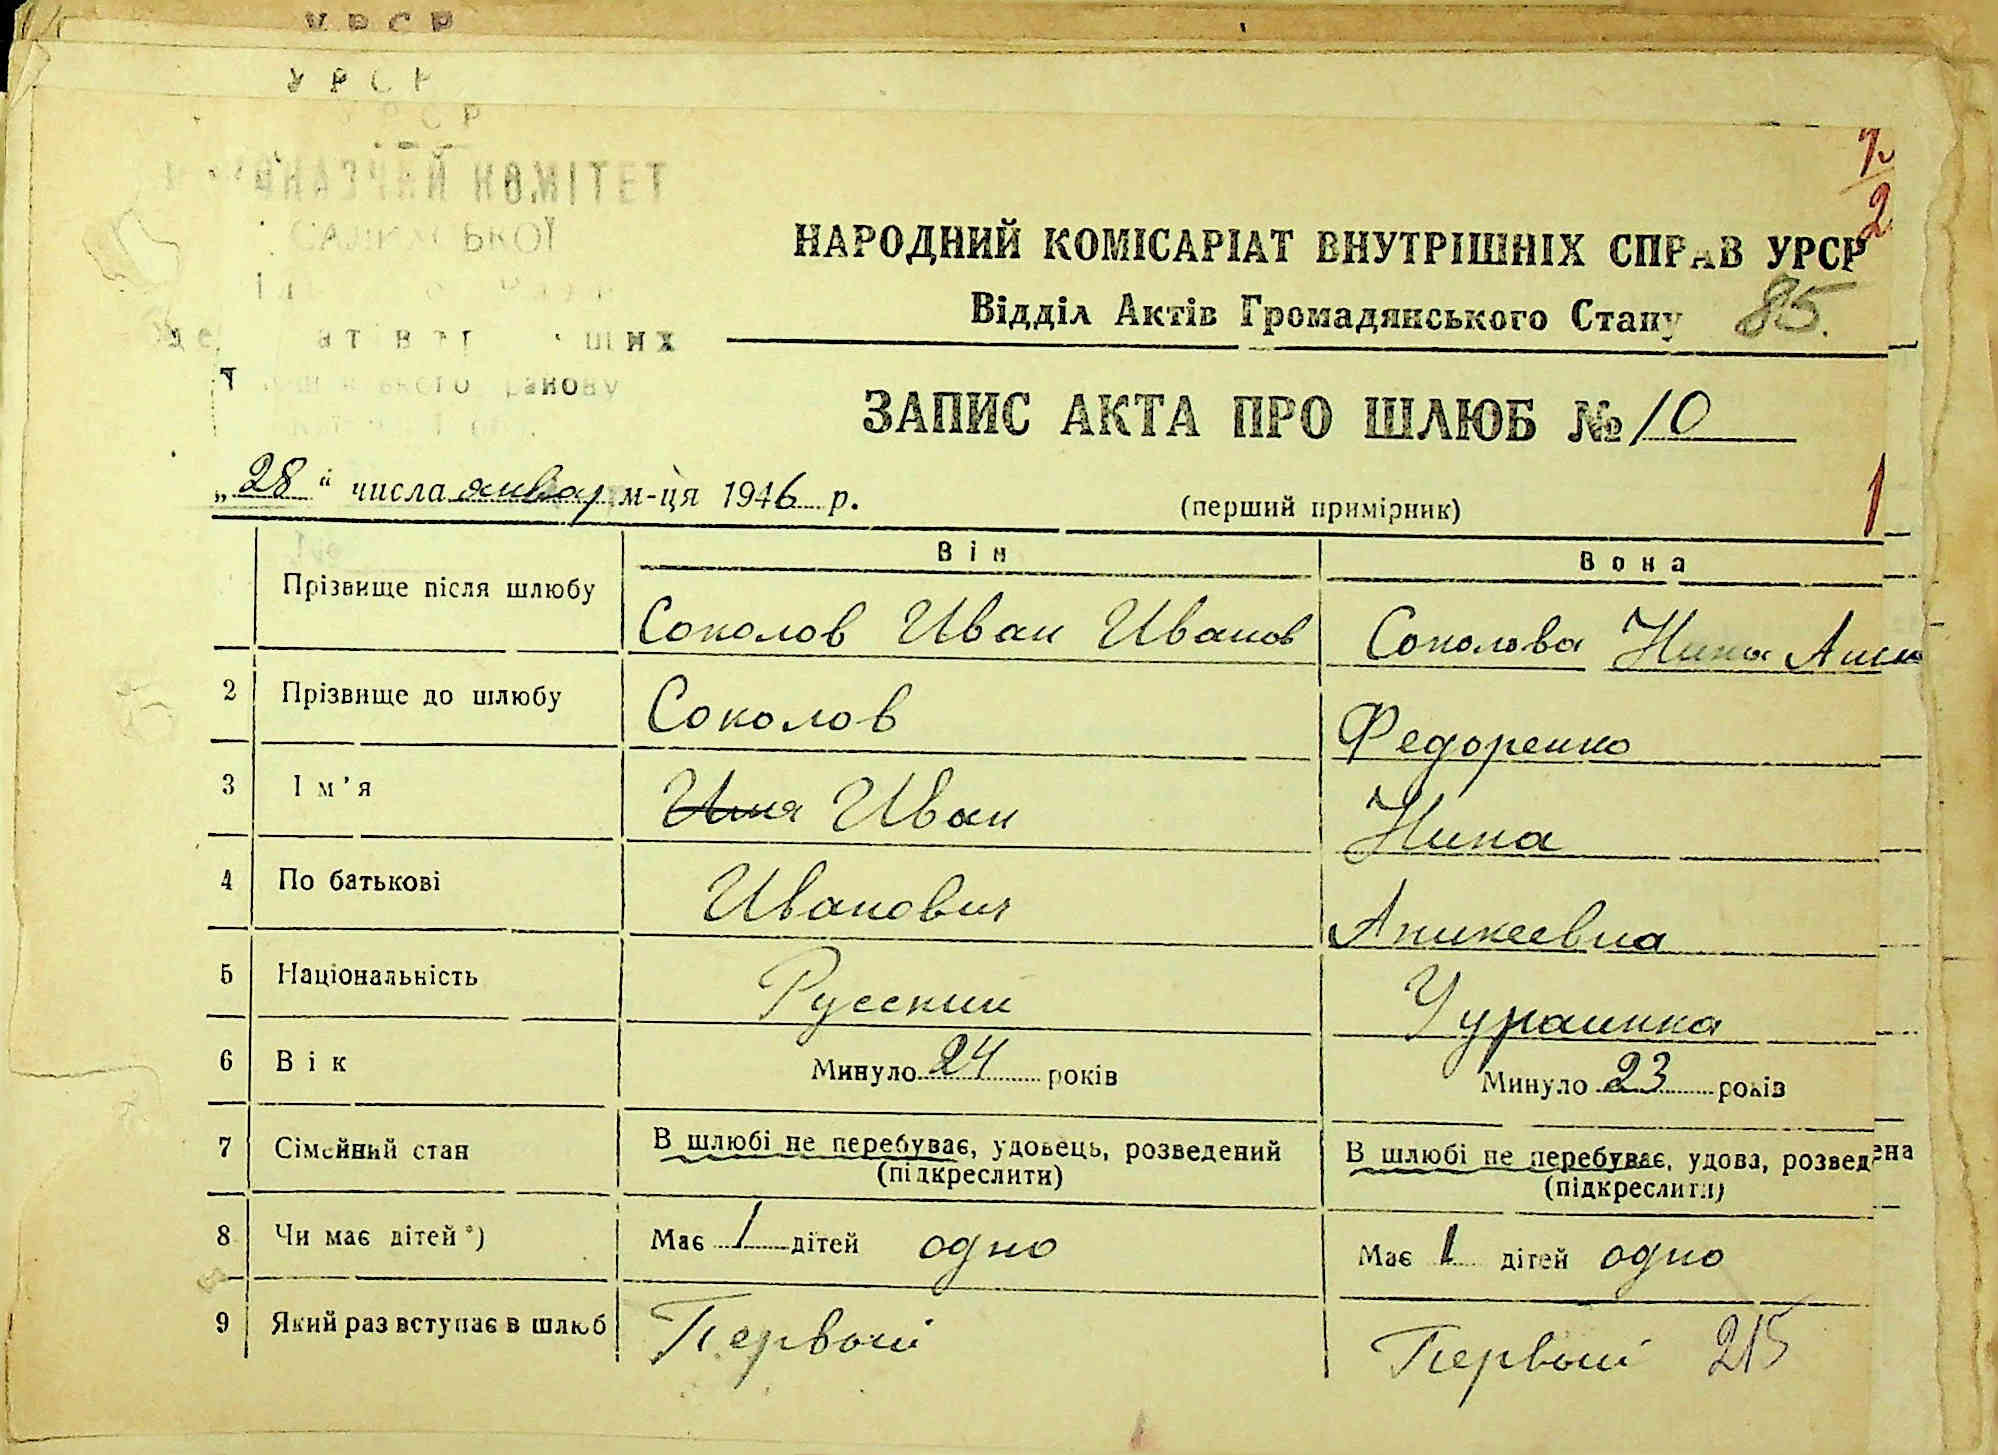 УРСР
УРСР
РСР
КОМІТЕТ
НАРОДНИЙ КОМІСАРІАТ ВНУТРІШНІХ СПРАВ УРСР
Відділ Актів Громадянського Стану 85.
ЗАПИС АКТА ПРО ШЛЮБ № 10
„28“ числа январ м-ця 1946 р. (перший примірник) 1
Він Вона
Прізвище після шлюбу Соколов Иван Иванов Соколова Нина
2 Прізвище до шлюбу Соколов Федоренко
3 Ім'я Имя Иван Нина
4 По батькові Иванович Аникеевна
5 Національність Русский Украинка
6 Вік Минуло 24 років Минуло 23 років
7 Сімейний стан В шлюбі не перебуває, удовець, розведений В шлюбі не перебуває, удова, розведена
(підкреслити) (підкреслити)
8 Чи має дітей*) Має 1 дітей одно Має 1 дітей одно
9 Який раз вступає в шлюб Первый Первый 215